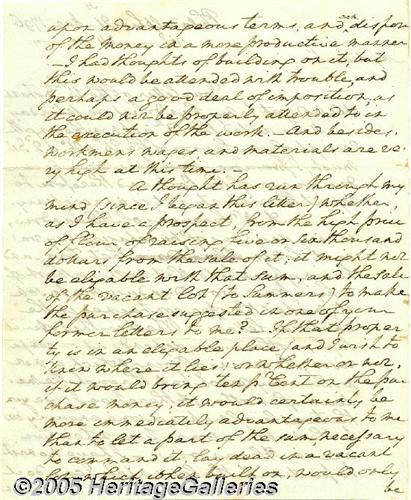 upon advantageous terms, and can dispose
of the money in a more productive manner
- I had thoughts of building on it, but
this would be attended with trouble, and
perhaps a good deal of imposition, as
it could not be properly attended to in
the execution of the work. - And besides,
workmens wages and materials are ve-
ry high at this time. -
A thought has run through my
mind (since I began this letter) whether,
as I have a prospect, from the high price
of flour, of raising five or six thousand
dollars from the sale of it, it might not
be eligable with that sum, and the sale
of the vacant lot (to Summers) to make
the purchase suggested in one of your
former letters to me? - If that proper-
ty is in an eligable place (and I wish to
know where it lies) or whether or not,
if it would bring ten pr Cent on the pur-
chase money, it would certainly be
more immediately advantageous to me
than to let a part of the sum, necessary
to command it, lay dead in a vacant
lot which when built on, would only
be
©2005 HeritageGalleries